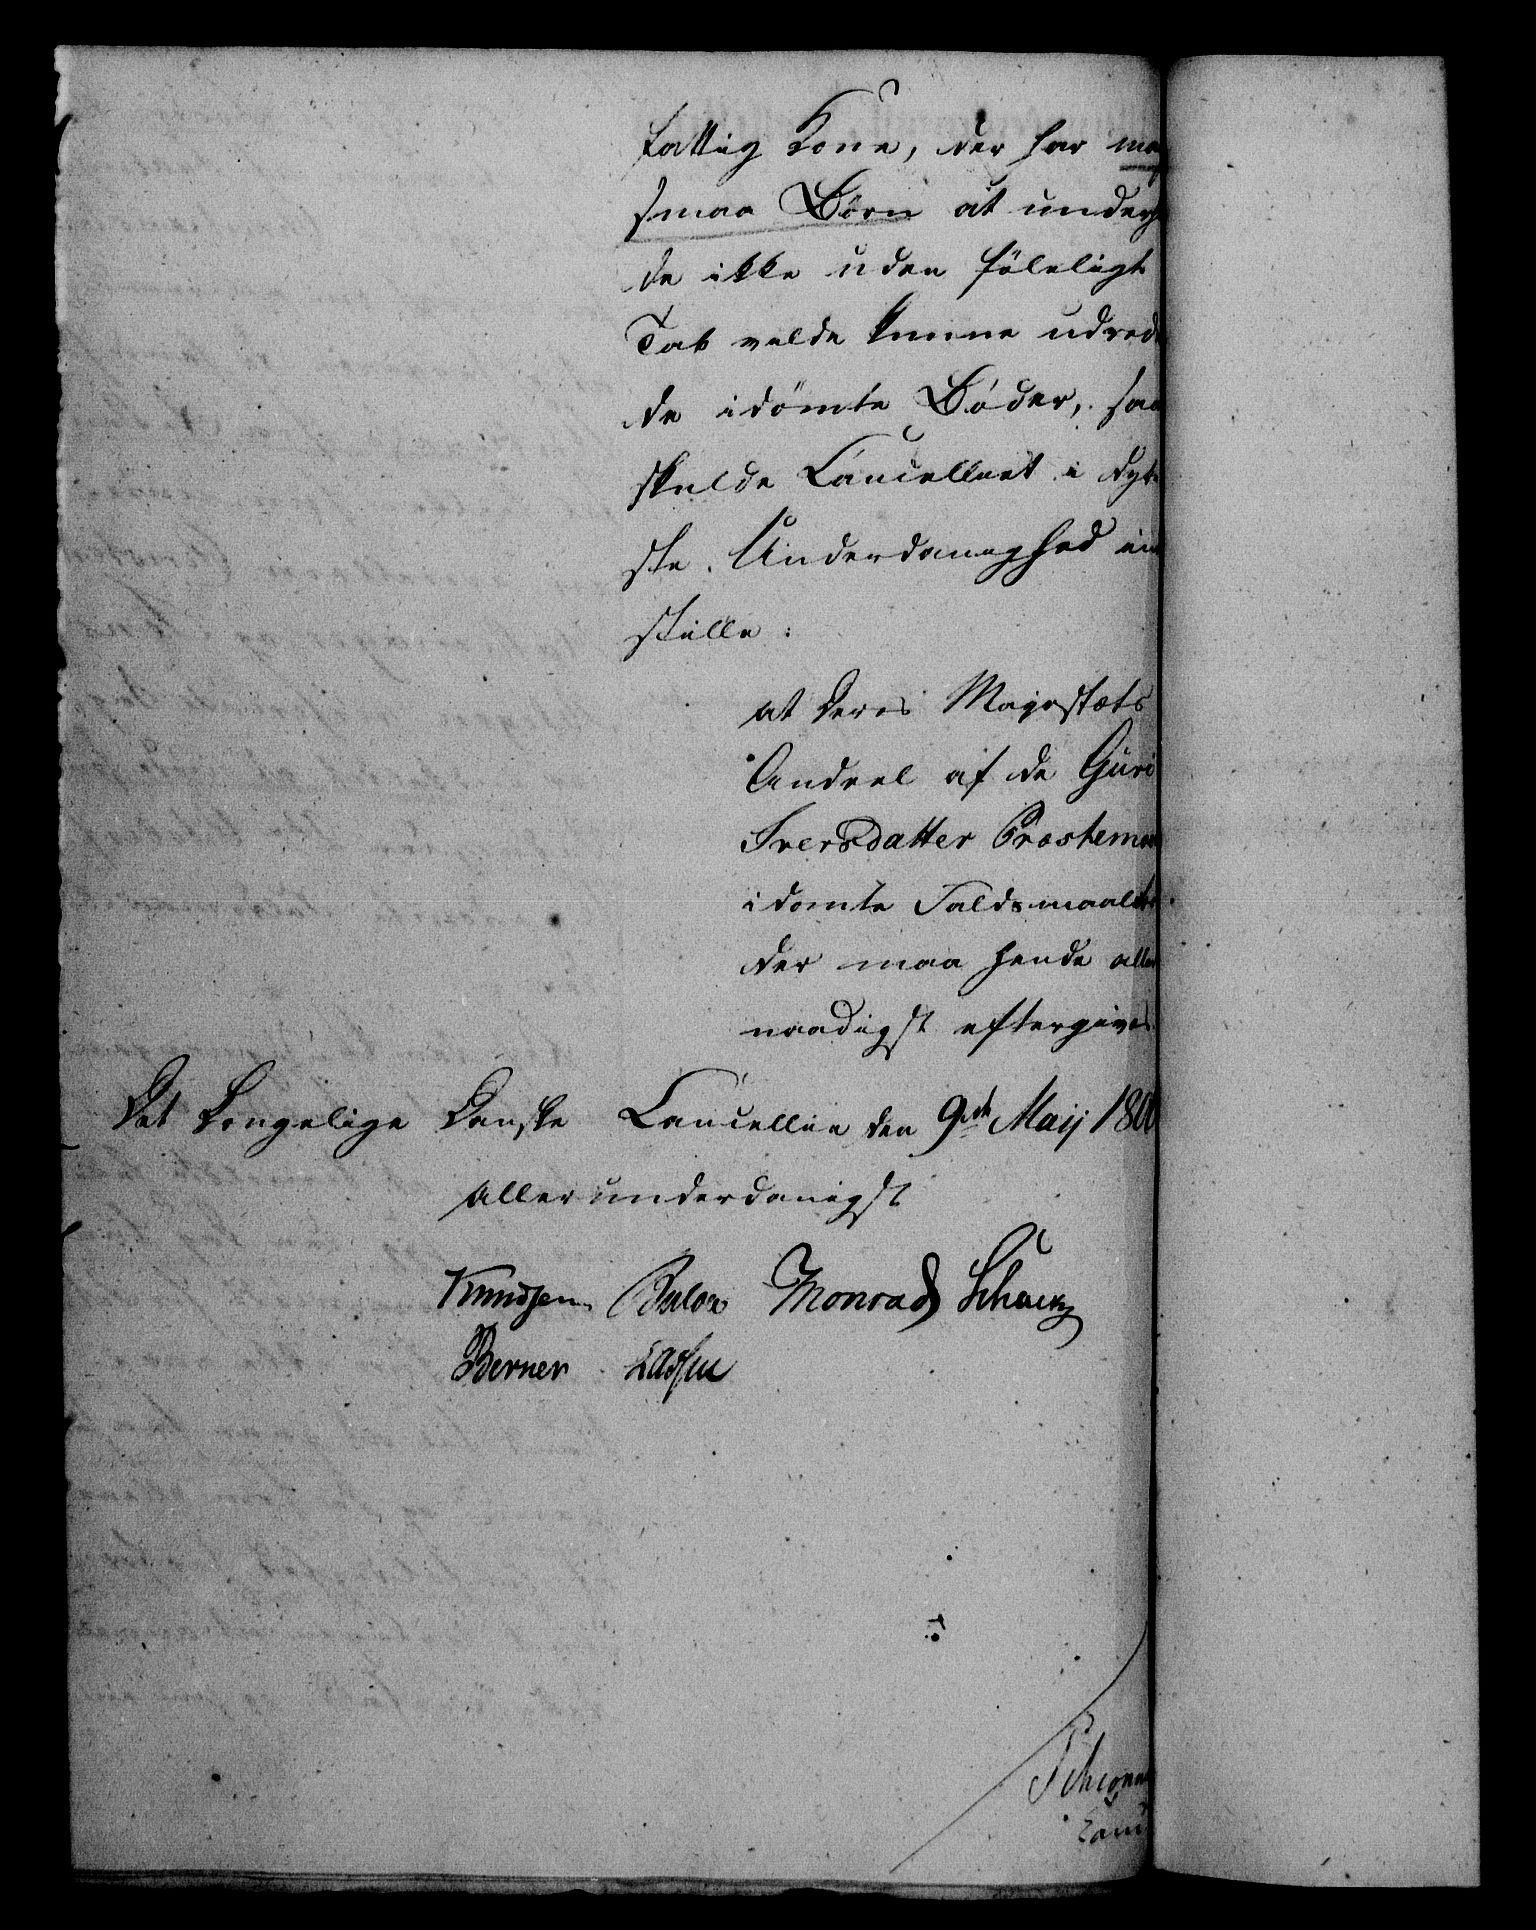 fattig Kone, der har man
smaa Børn at under
de ikke uden føleligt
Tab vilde kunne udred
de idømte Bøder, saa
skulde Cancelliet i dyb
ste Underdanighed ind
stille:
at Deres Majestæts
Andeel af de Guri
Iversdatter Præstemoe
idømte Faldsmaalbø
der maa hende aller
naadigst eftergives.
Det Kongelige Danske Cancellie den 9de Maij 180
allerunderdanigst
Knudsen Bülow Monrad Schack
Berner Lassen